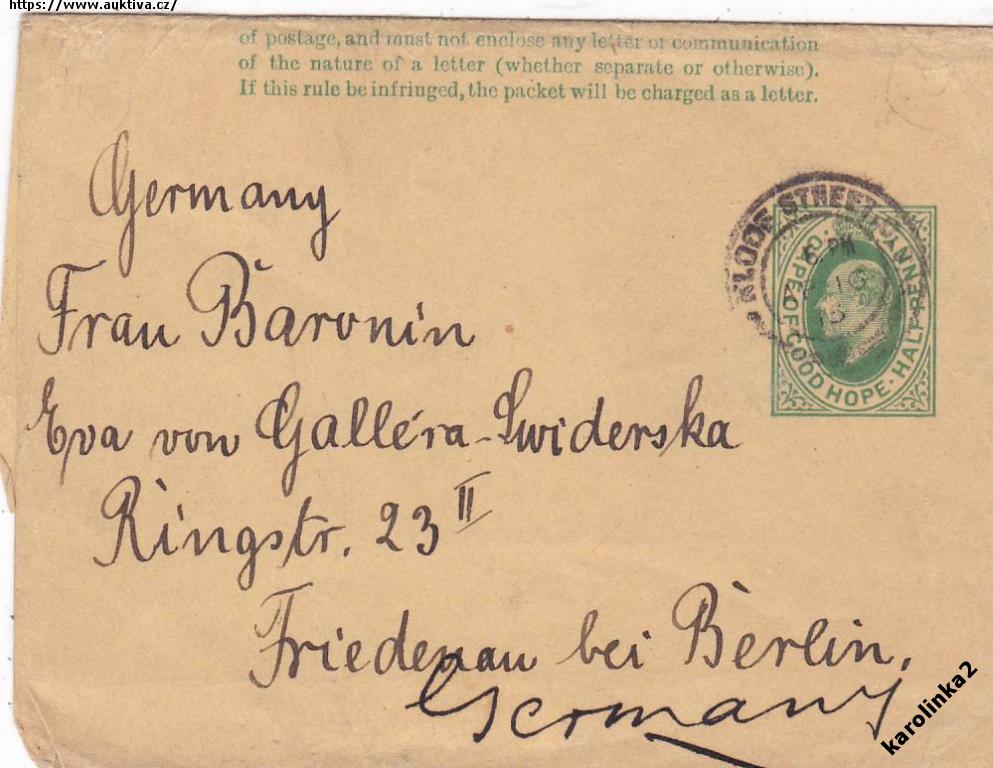 https://www.auktiva.cz/
of postage, and must not enclose any letter or communication
of the nature of a letter (whether separate or otherwise).
If this rule be infringed, the packet will be charged as a letter.
Germany
KLOOF STREET
6 PM
CAPE OF GOOD HOPE · HALFPENNY
Frau Baronin
Eva von Galléra-Swiderska
Ringstr. 23 II
Friedenau bei Berlin.
Germany
karolinka2